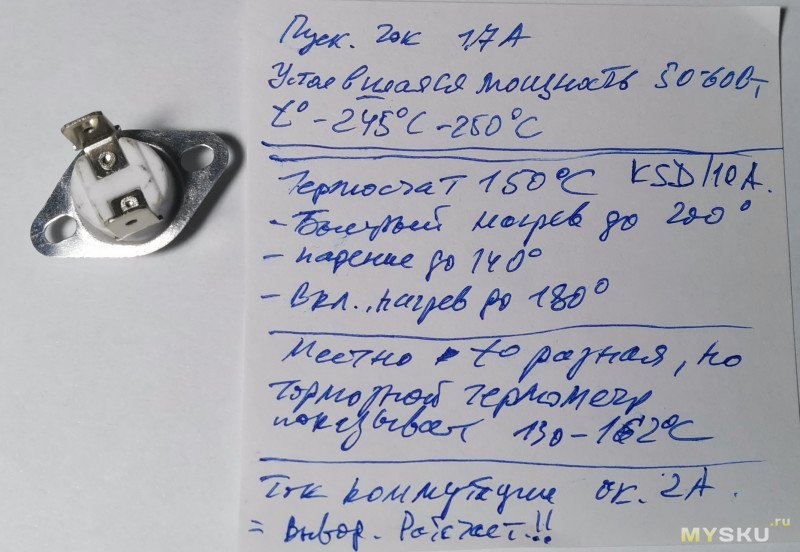 Пуск. ток 1,7А
Устоевшаяся мощность 50-60Вт,
t° - 245°C - 250°C
Термостат 150°C KSD/10А.
- Быстрый нагрев до 200°
- падение до 140°
- Вкл., нагрев до 180°
Местно t° разная, но
тормозной термометр
показывает 130-162°C
Ток коммутации ок. 2А.
= Вывод. Работает!!
MYSKU.ru